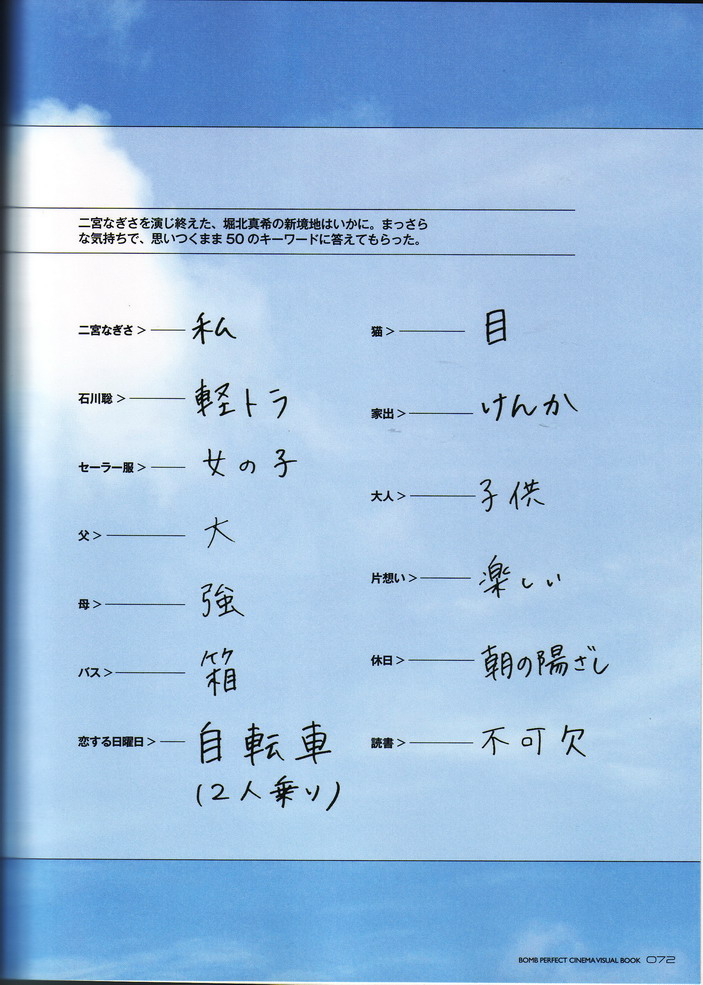 二宮なぎさを演じ終えた、堀北真希の新境地はいかに。まっさら
な気持ちで、思いつくまま50のキーワードに答えてもらった。
二宮なぎさ> 私
石川聡> 軽トラ
セーラー服> 女の子
父> 大
母> 強
バス> 箱
恋する日曜日> 自転車
(2人乗り)
猫> 目
家出> けんか
大人> 子供
片想い> 楽しい
休日> 朝の陽ざし
読書> 不可欠
BOMB PERFECT CINEMA VISUAL BOOK 072